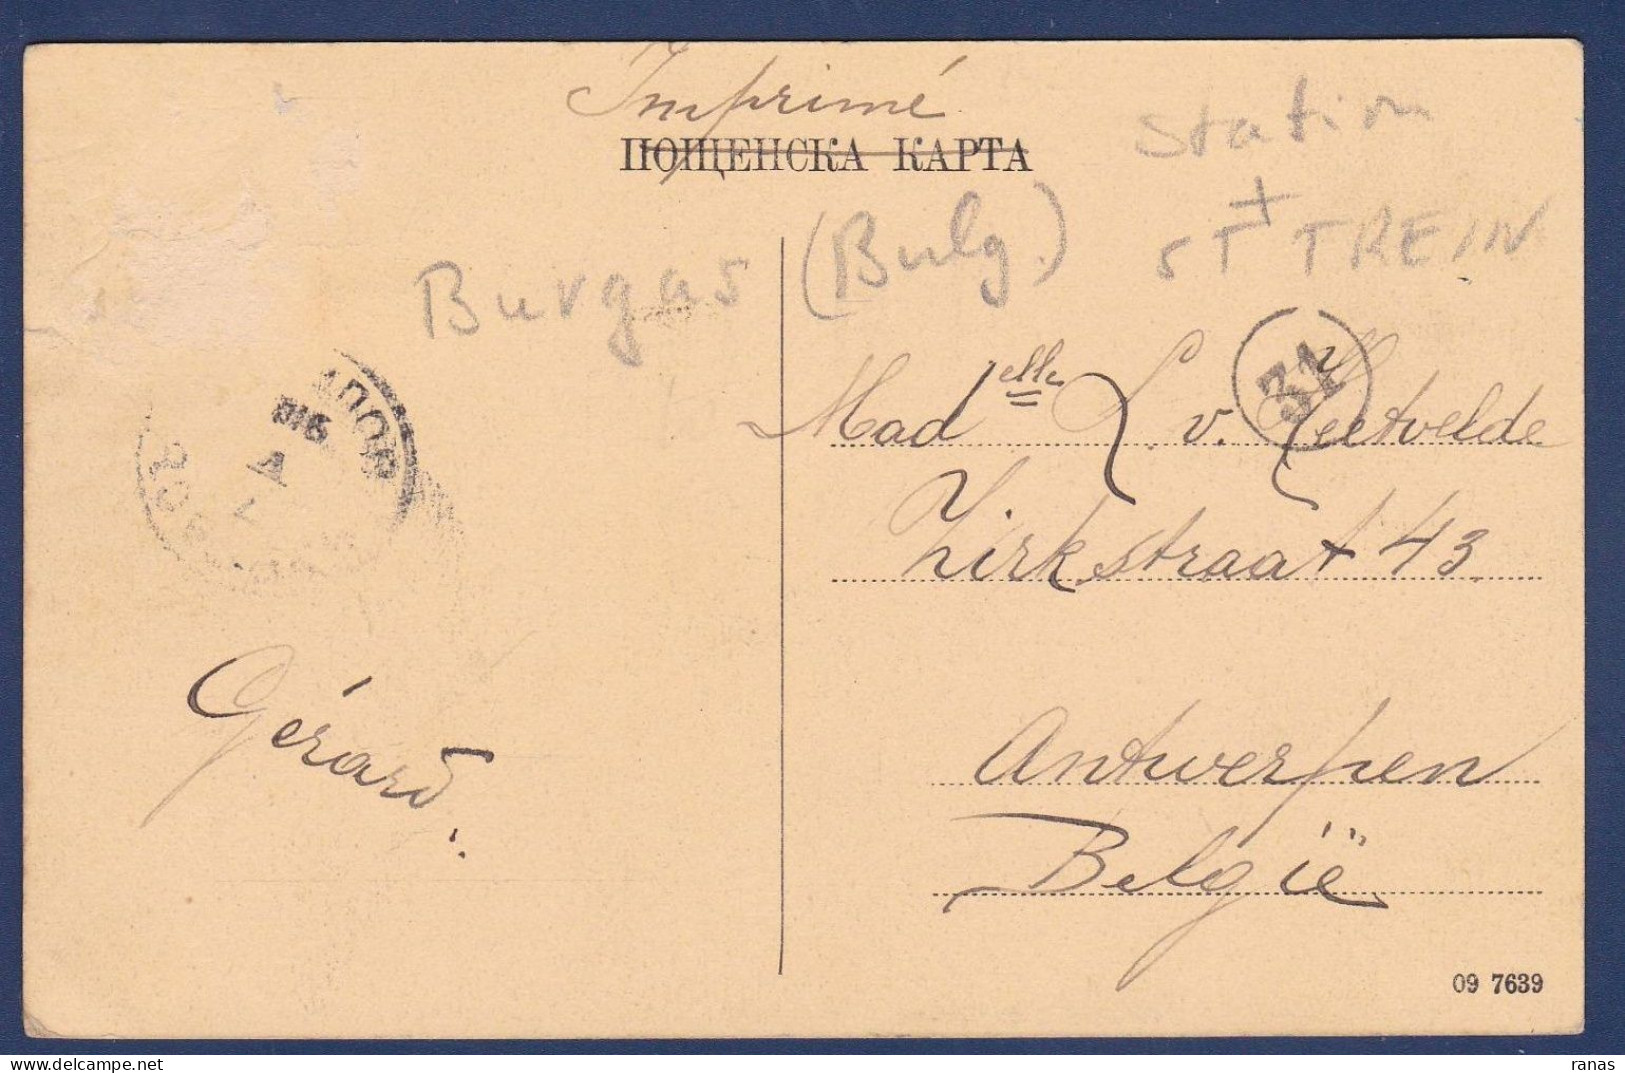 Imprimé
ПОЩЕНСКА КАРТА
Station
+
ST TREIN
Burgas (Bulg.)
31
Mad elle L. v. Zeetvelde
Zirkstraat 43
Gérard
Antwerpen
België
09 7639
ranas